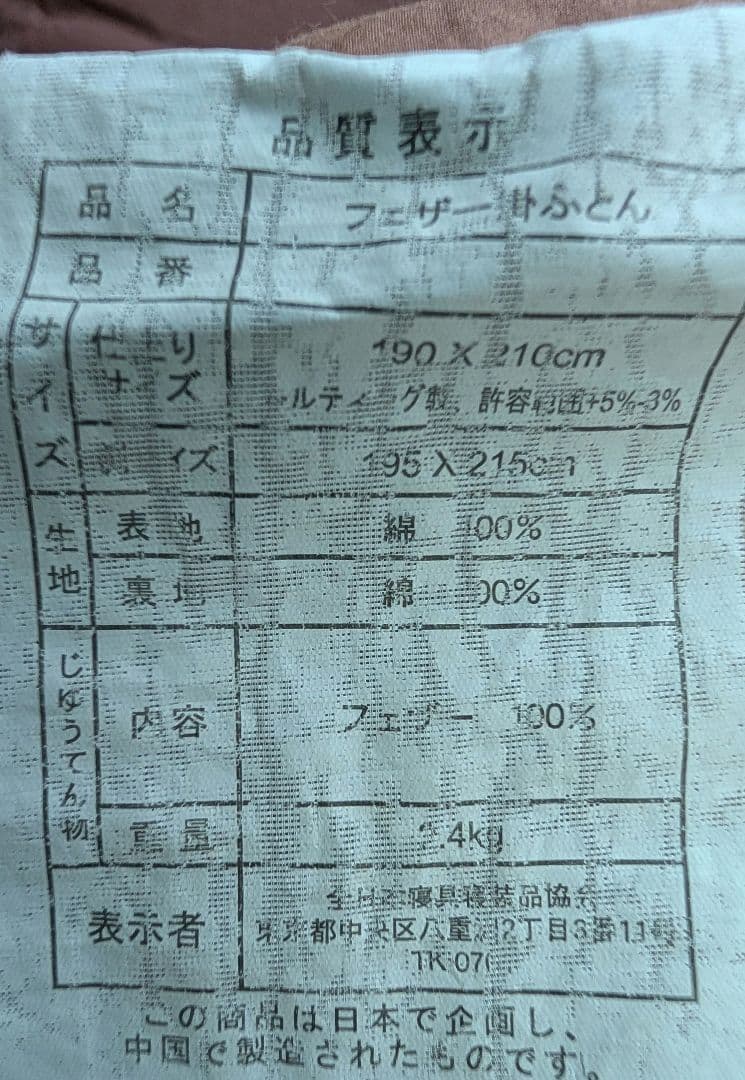 品質表示
品名 フェザー掛ふとん
品番
サイズ
仕上り 190 X 210cm
サイズ キルティング製、許容範囲+5%-3%
サイズ 195 X 215cm
生地
表地 綿 100%
裏地 綿 100%
じゅうてん物
内容 フェザー 100%
重量 2.4kg
表示者
全日本寝具寝装品協会
東京都中央区八重洲2丁目3番11号
TK 070
この商品は日本で企画し、
中国で製造されたものです。